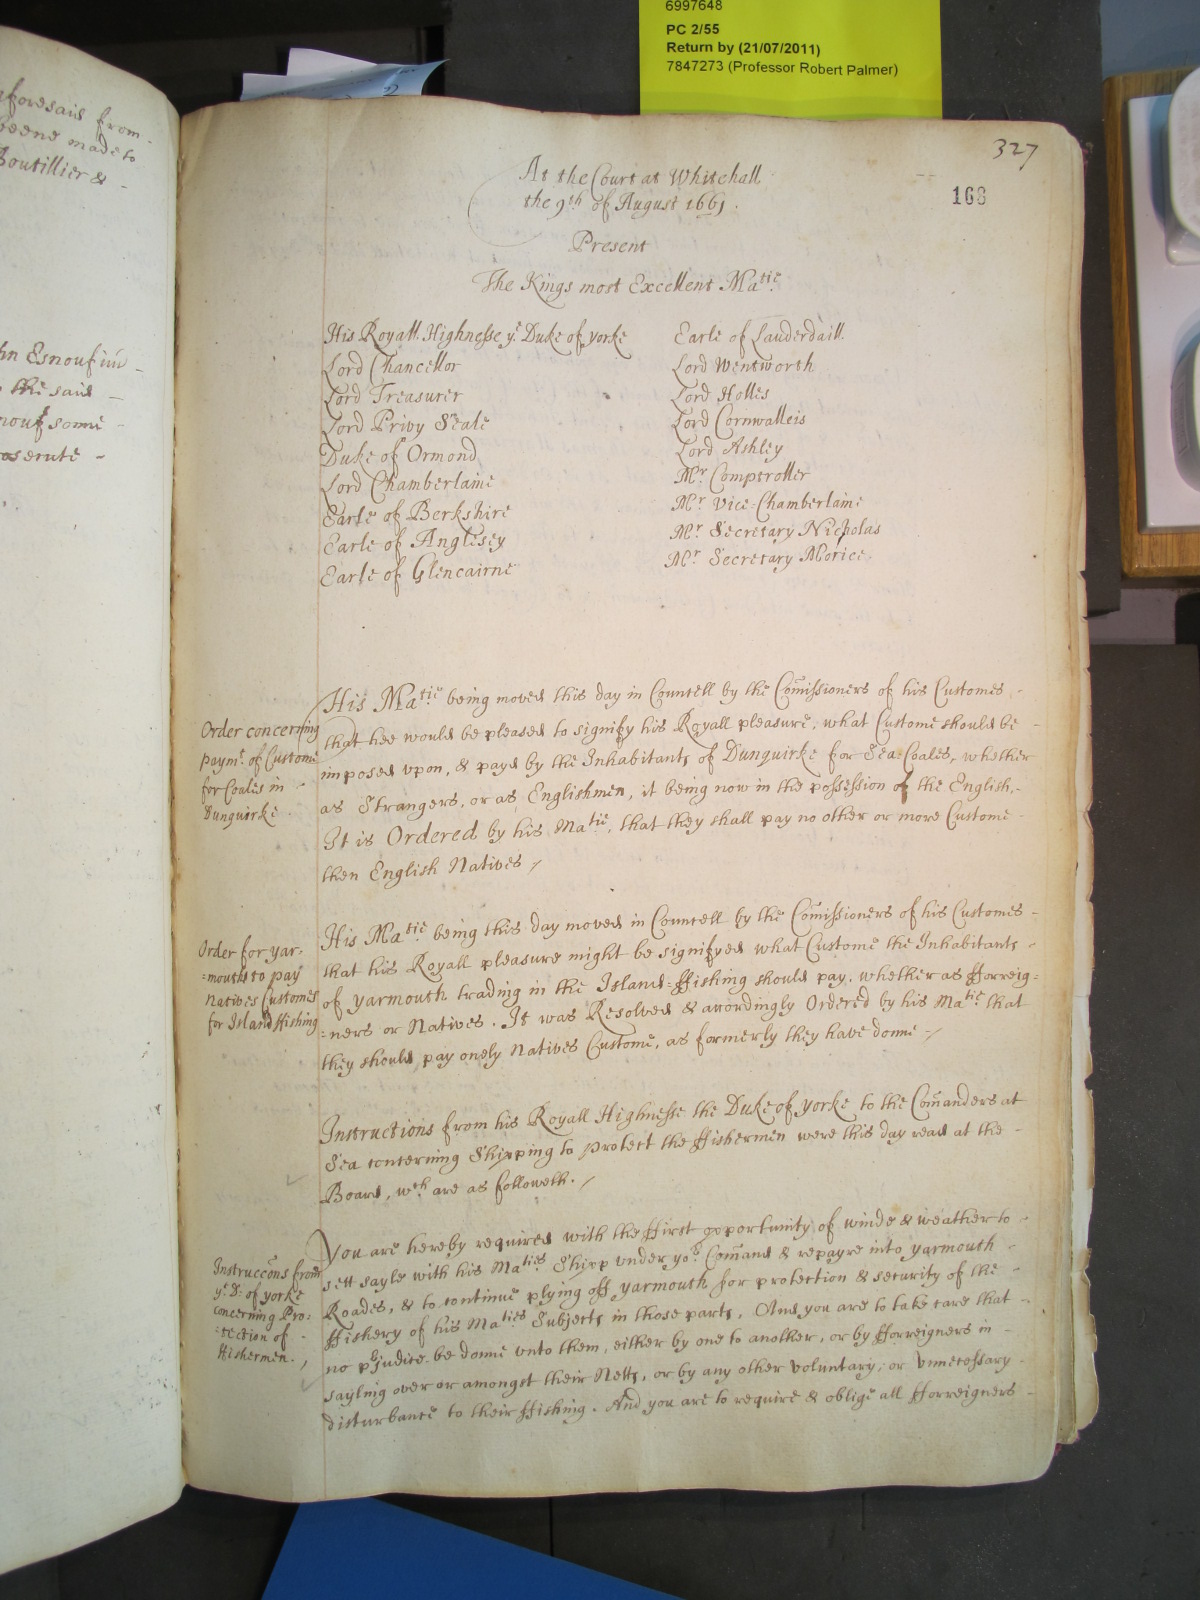 6997648
PC 2/55
Return by (21/07/2011)
7847273 (Professor Robert Palmer)
aforesaid from
beene made to
Boutillier & -
Esnouf
the said -
some -
327
168
At the Court at Whitehall
the 9th of August 1661.
Present
The Kings most Excellent Matie
His Royall Highnesse ye Duke of yorke
Lord Chancellor
Lord Treasurer
Lord Privy Seale
Duke of Ormond
Lord Chamberlaine
Earle of Berkshire
Earle of Anglesey
Earle of Glencairne
Earle of Lauderdaill
Lord Wentworth
Lord Holles
Lord Cornwalleis
Lord Ashley
Mr Comptroller
Mr Vice=Chamberlaine
Mr Secretary Nicholas
Mr Secretary Morice
Order concerning
paymt. of Custome
for Coales in
Dunquirke
His Matie being moved this day in Councell by the Com̃issioners of his Customes -
that hee would be pleased to signify his Royall pleasure, what Custome should be -
imposed upon, & payd by the Inhabitants of Dunquirke for Sea=Coales, whether
as Strangers, or as Englishmen, it being now in the possession of the English,-
It is Ordered by his Matie, that they shall pay no other or more Custome -
then English Natives /
Order for yar-
=mouth to pay
Natives Customes
for Island ffishing
His Matie being this day moved in Councell by the Com̃issioners of his Customes -
that his Royall pleasure might be signifyed what Custome the Inhabitants -
of yarmouth trading in the Island=ffishing should pay, whether as fforreig=
=ners or Natives. It was Resolved & accordingly Ordered by his Matie that
they should pay onely Natives Custome, as formerly they have donne -/
Instructions from his Royall Highnesse the Duke of yorke to the Com̃anders at
Sea concerning Shipping to protect the ffishermen were this day read at the -
Board, wch are as followeth. /
Instruccons from
ye D: of yorke
concerning Pro=
=tection of
ffishermen. /
You are hereby required with the ffirst opportunity of winde & weather to -
sett sayle with his Maties Shipp under yor Com̃and & repayre into yarmouth -
Roades, & to continue plying off yarmouth for protection & security of the -
ffishery of his Maties Subjects in those parts. And you are to take care that -
no pjudice be donne unto them, either by one to another, or by fforreigners in -
sayling over or amongst their Netts, or by any other voluntary, or unnecessary -
disturbance to their ffishing. And you are to require & oblige all fforreigners -